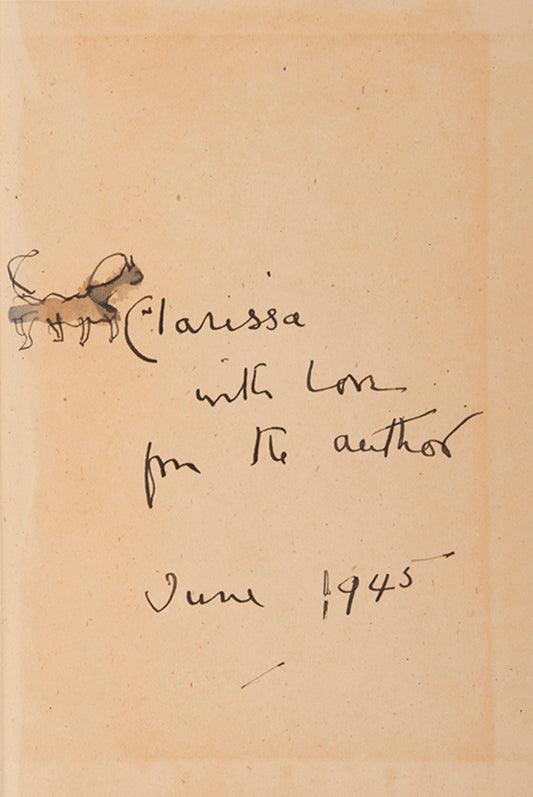 Clarissa
with Love
from the author
June 1945